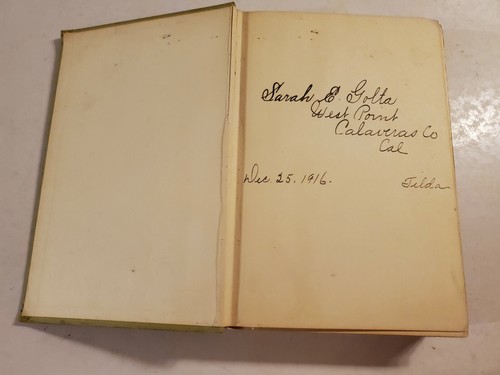 Sarah E. Golta
West Point
Calaveras Co
Cal
Dec. 25. 1916. Tilda